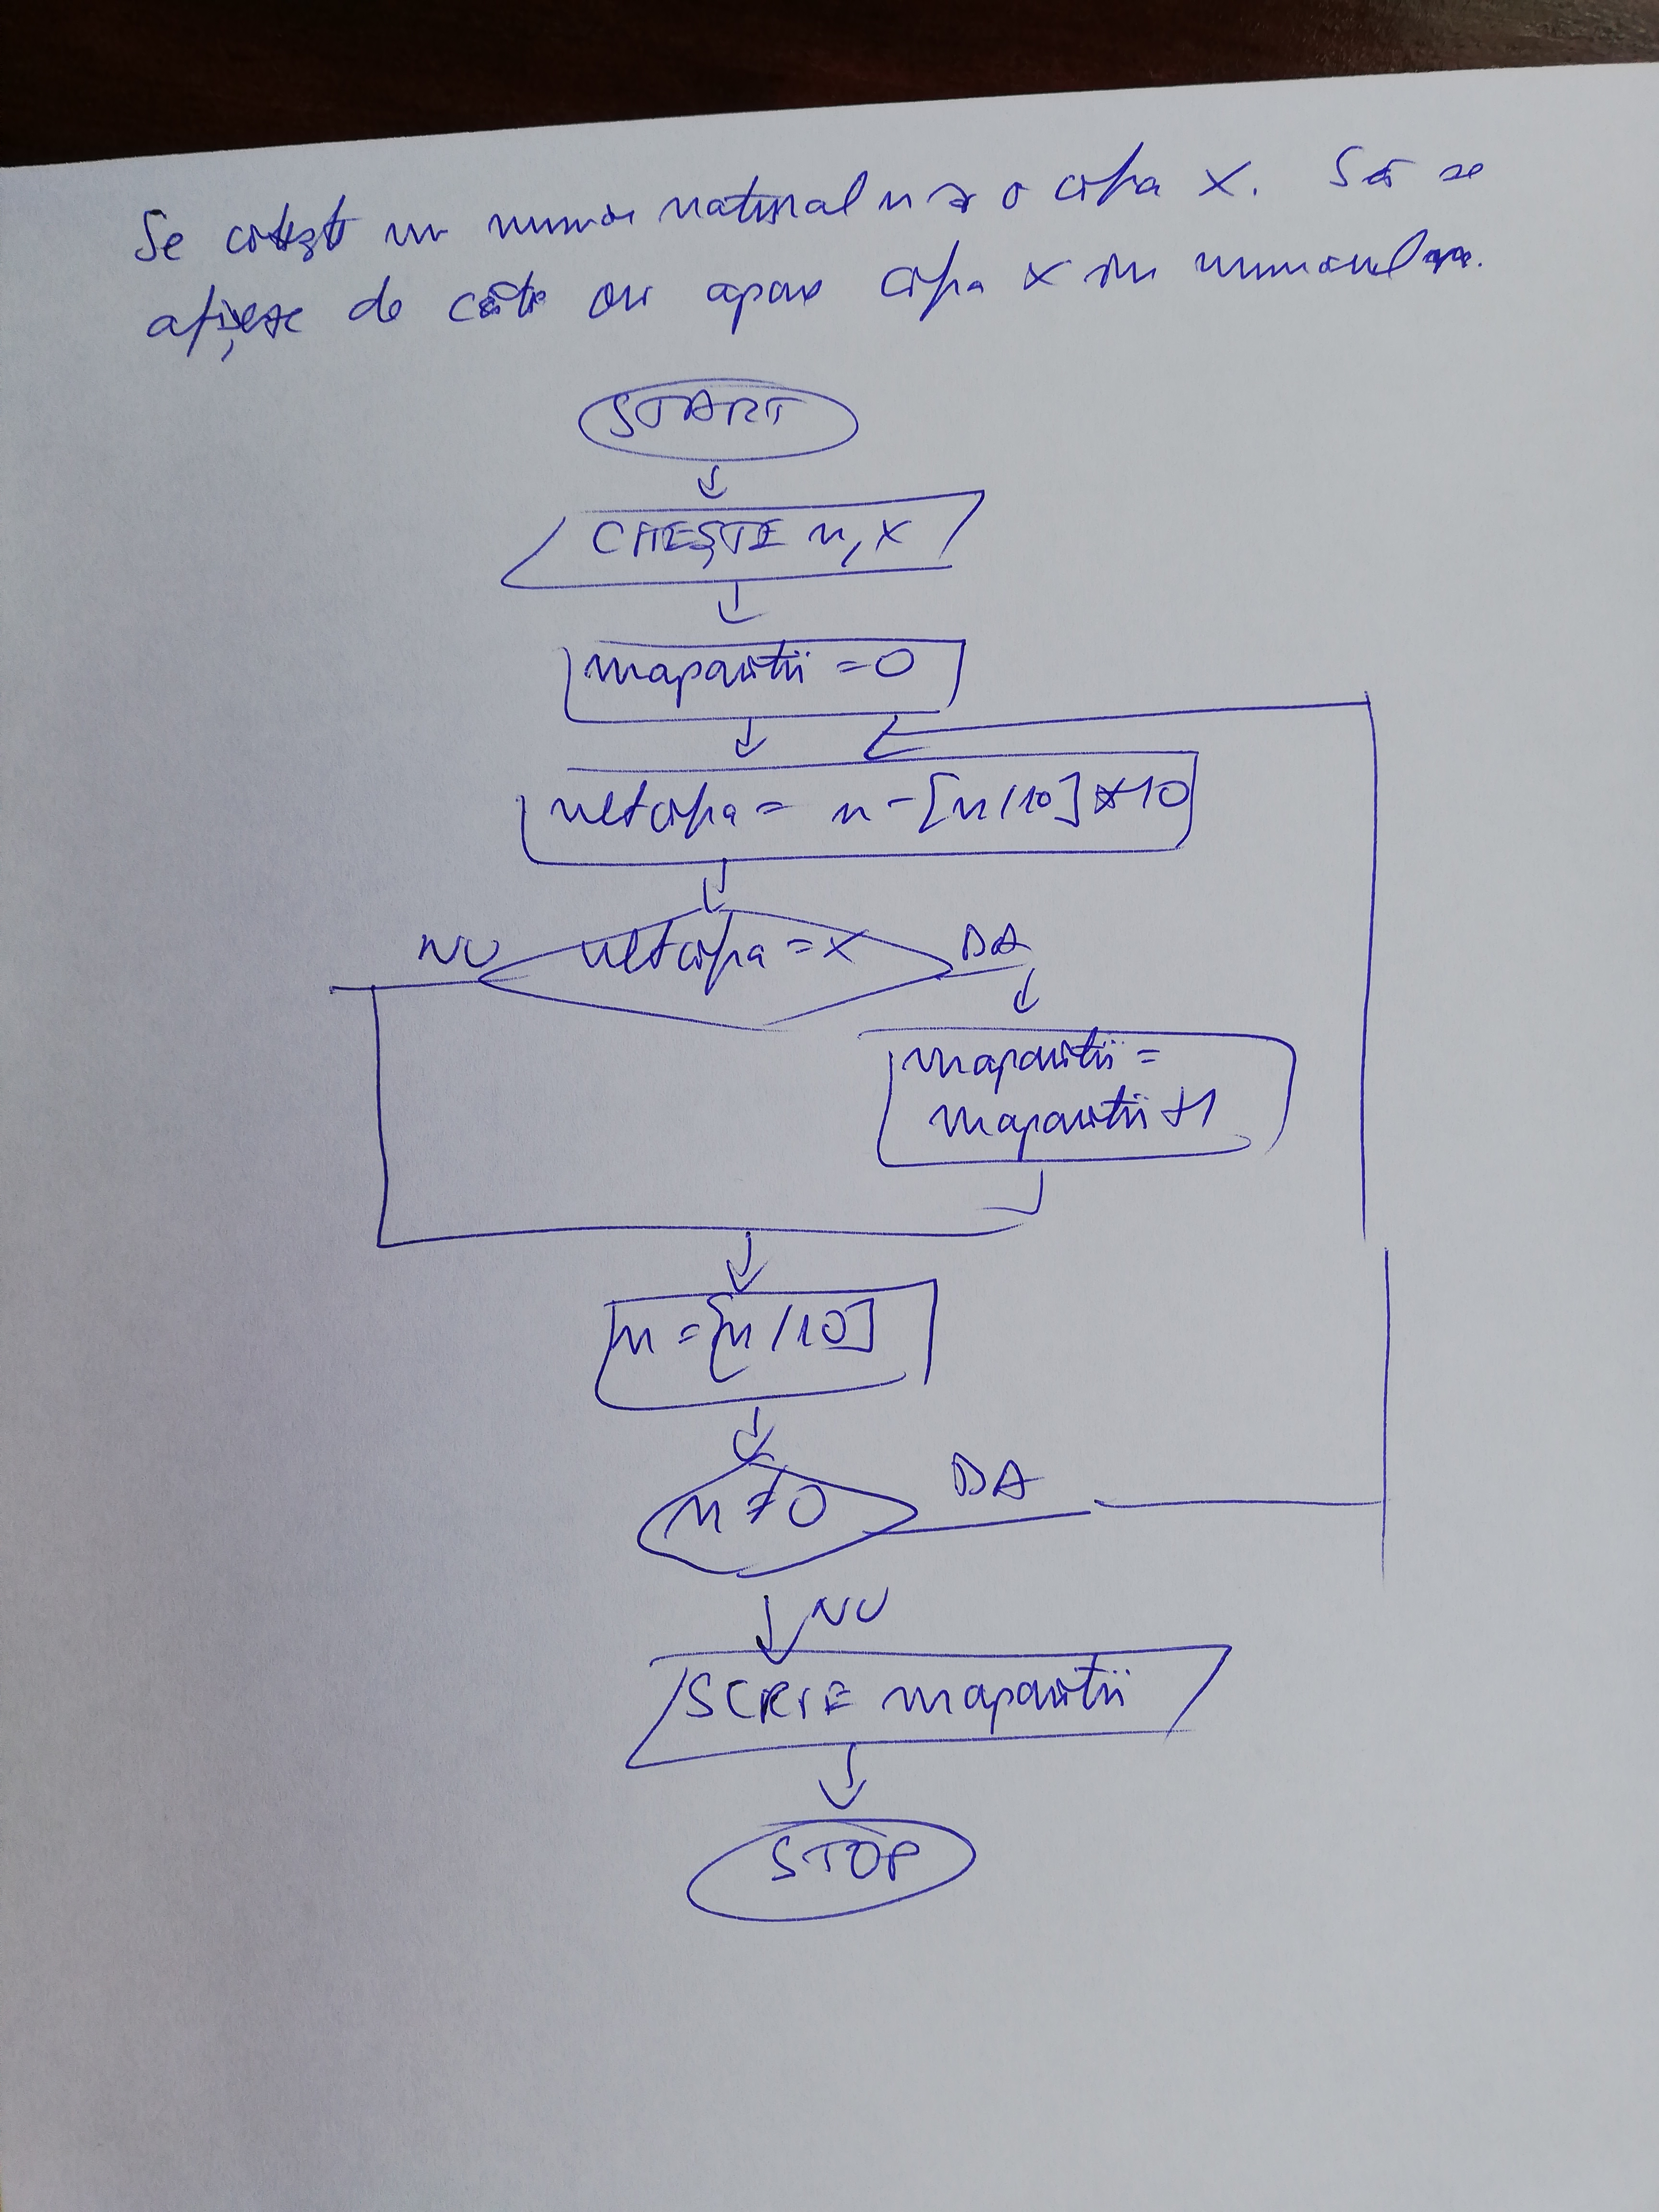 Se citește un număr natural n și o cifra x. Să se
afișeze de câte ori apare cifra x în numarul
START
CITEȘTE n, x
naparitii = 0
ultcifra = n - [n/10] * 10
NU
ultcifra = x
DA
naparitii =
naparitii + 1
n = [n/10]
n ≠ 0
DA
NU
SCRIE naparitii
STOP